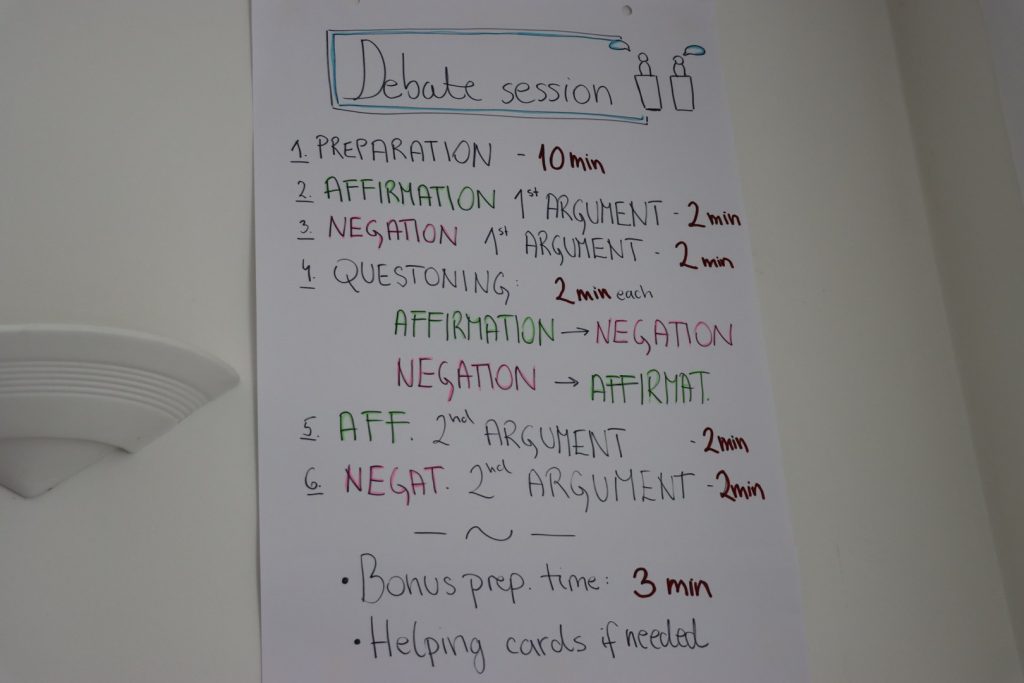 Debate session
1. PREPARATION - 10 min
2. AFFIRMATION 1st ARGUMENT - 2 min
3. NEGATION 1st ARGUMENT - 2 min
4. QUESTONING: 2 min each
AFFIRMATION → NEGATION
NEGATION → AFFIRMAT.
5. AFF. 2nd ARGUMENT - 2 min
6. NEGAT. 2nd ARGUMENT - 2 min
— ~ —
• Bonus prep. time: 3 min
• Helping cards if needed